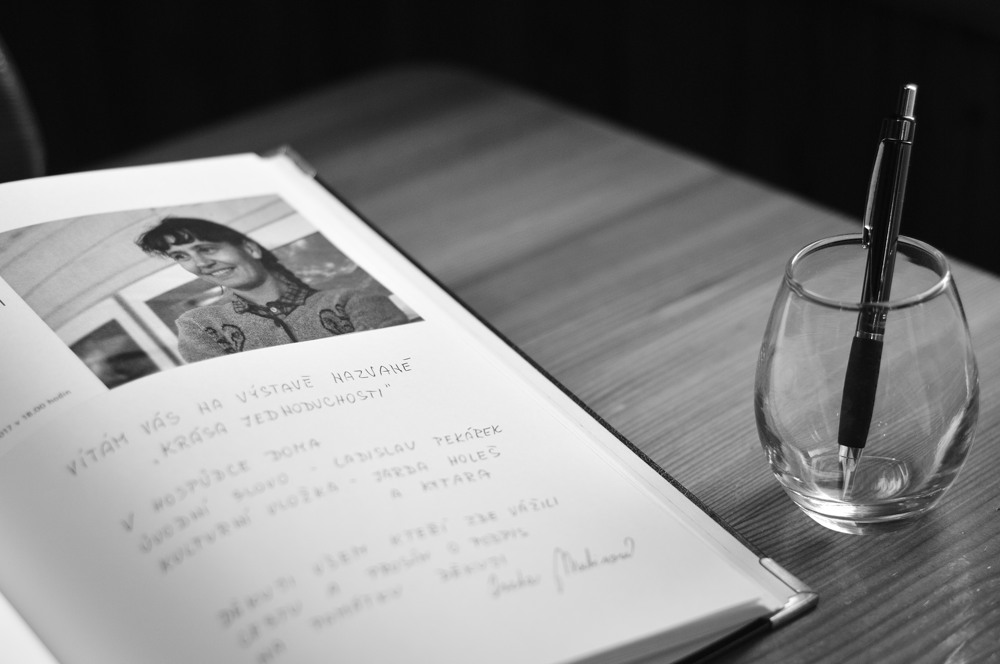 2017 v 18.00 hodin
VÍTÁM VÁS NA VÝSTAVĚ NAZVANÉ
„KRÁSA JEDNODUCHOSTI"
V HOSPŮDCE DOMA
ÚVODNÍ SLOVO - LADISLAV PEKÁREK
KULTURNÍ VLOŽKA - JARDA HOLEŠ
A KYTARA
DĚKUJI VŠEM KTEŘÍ ZDE VÁŽILI
CESTU A PROSÍM O PODPIS
NA PAMÁTKU DĚKUJI